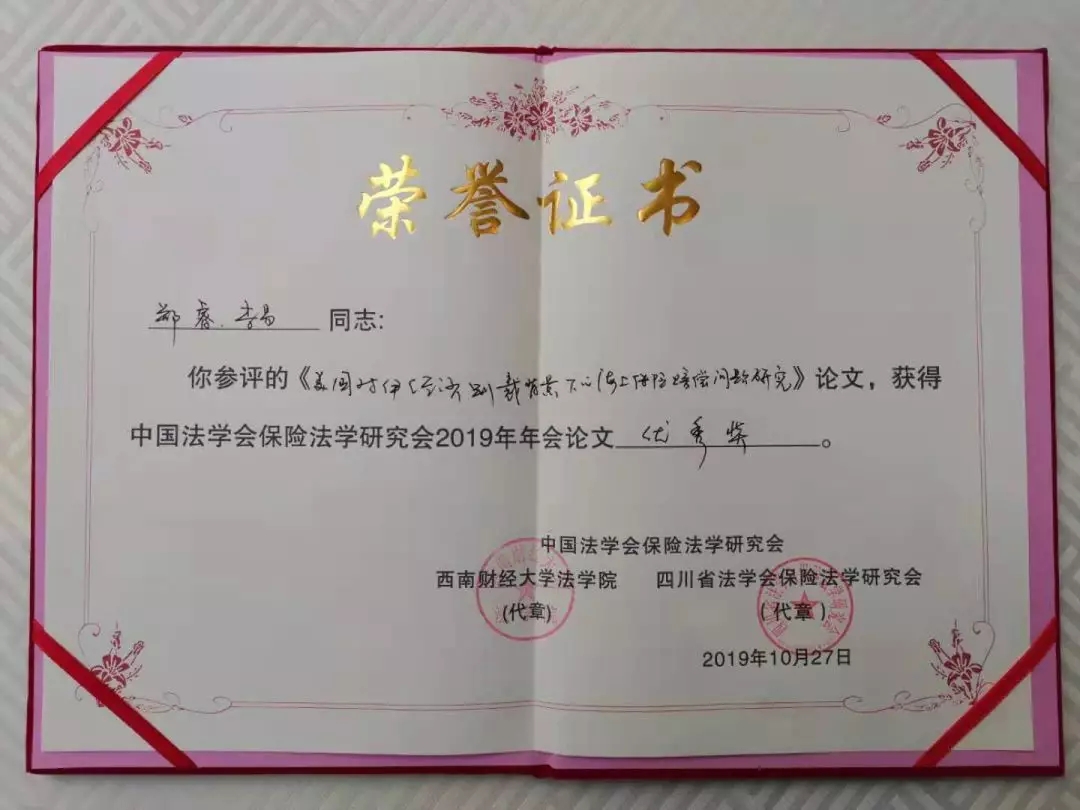 荣誉证书
郑睿、李易 同志:
你参评的《美国对伊经济制裁背景下的海上保险赔偿问题研究》论文，获得
中国法学会保险法学研究会2019年年会论文 优秀奖 。
中国法学会保险法学研究会
西南财经大学法学院 四川省法学会保险法学研究会
(代章) (代章)
2019年10月27日